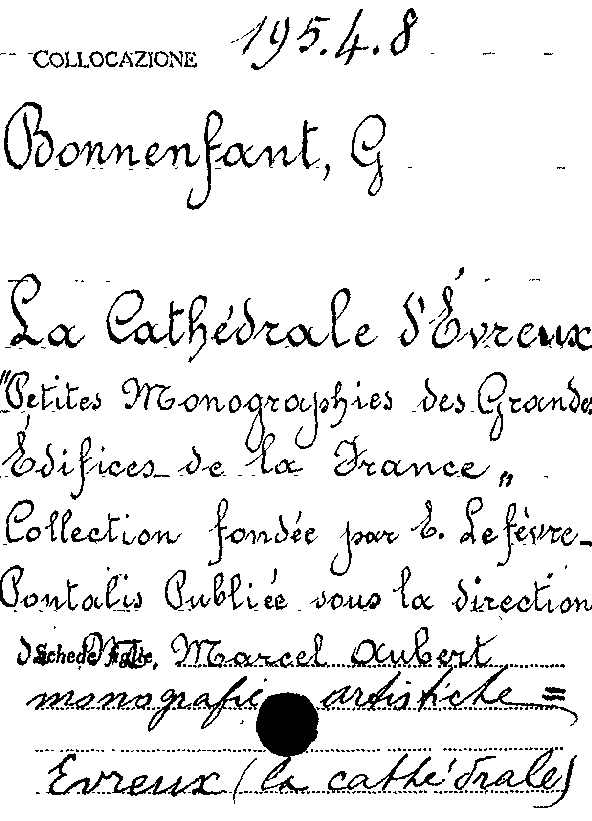 COLLOCAZIONE 195.4.8
Bonnenfant, G
La Cathédrale d'Évreux
"Petites Monographies des Grands
Édifices de la France„
Collection fondée par E. Lefèvre-
Pontalis Publiée sous la direction
de Schede figlie, Marcel Aubert
monografie artistiche =
Evreux (la cathédrale)